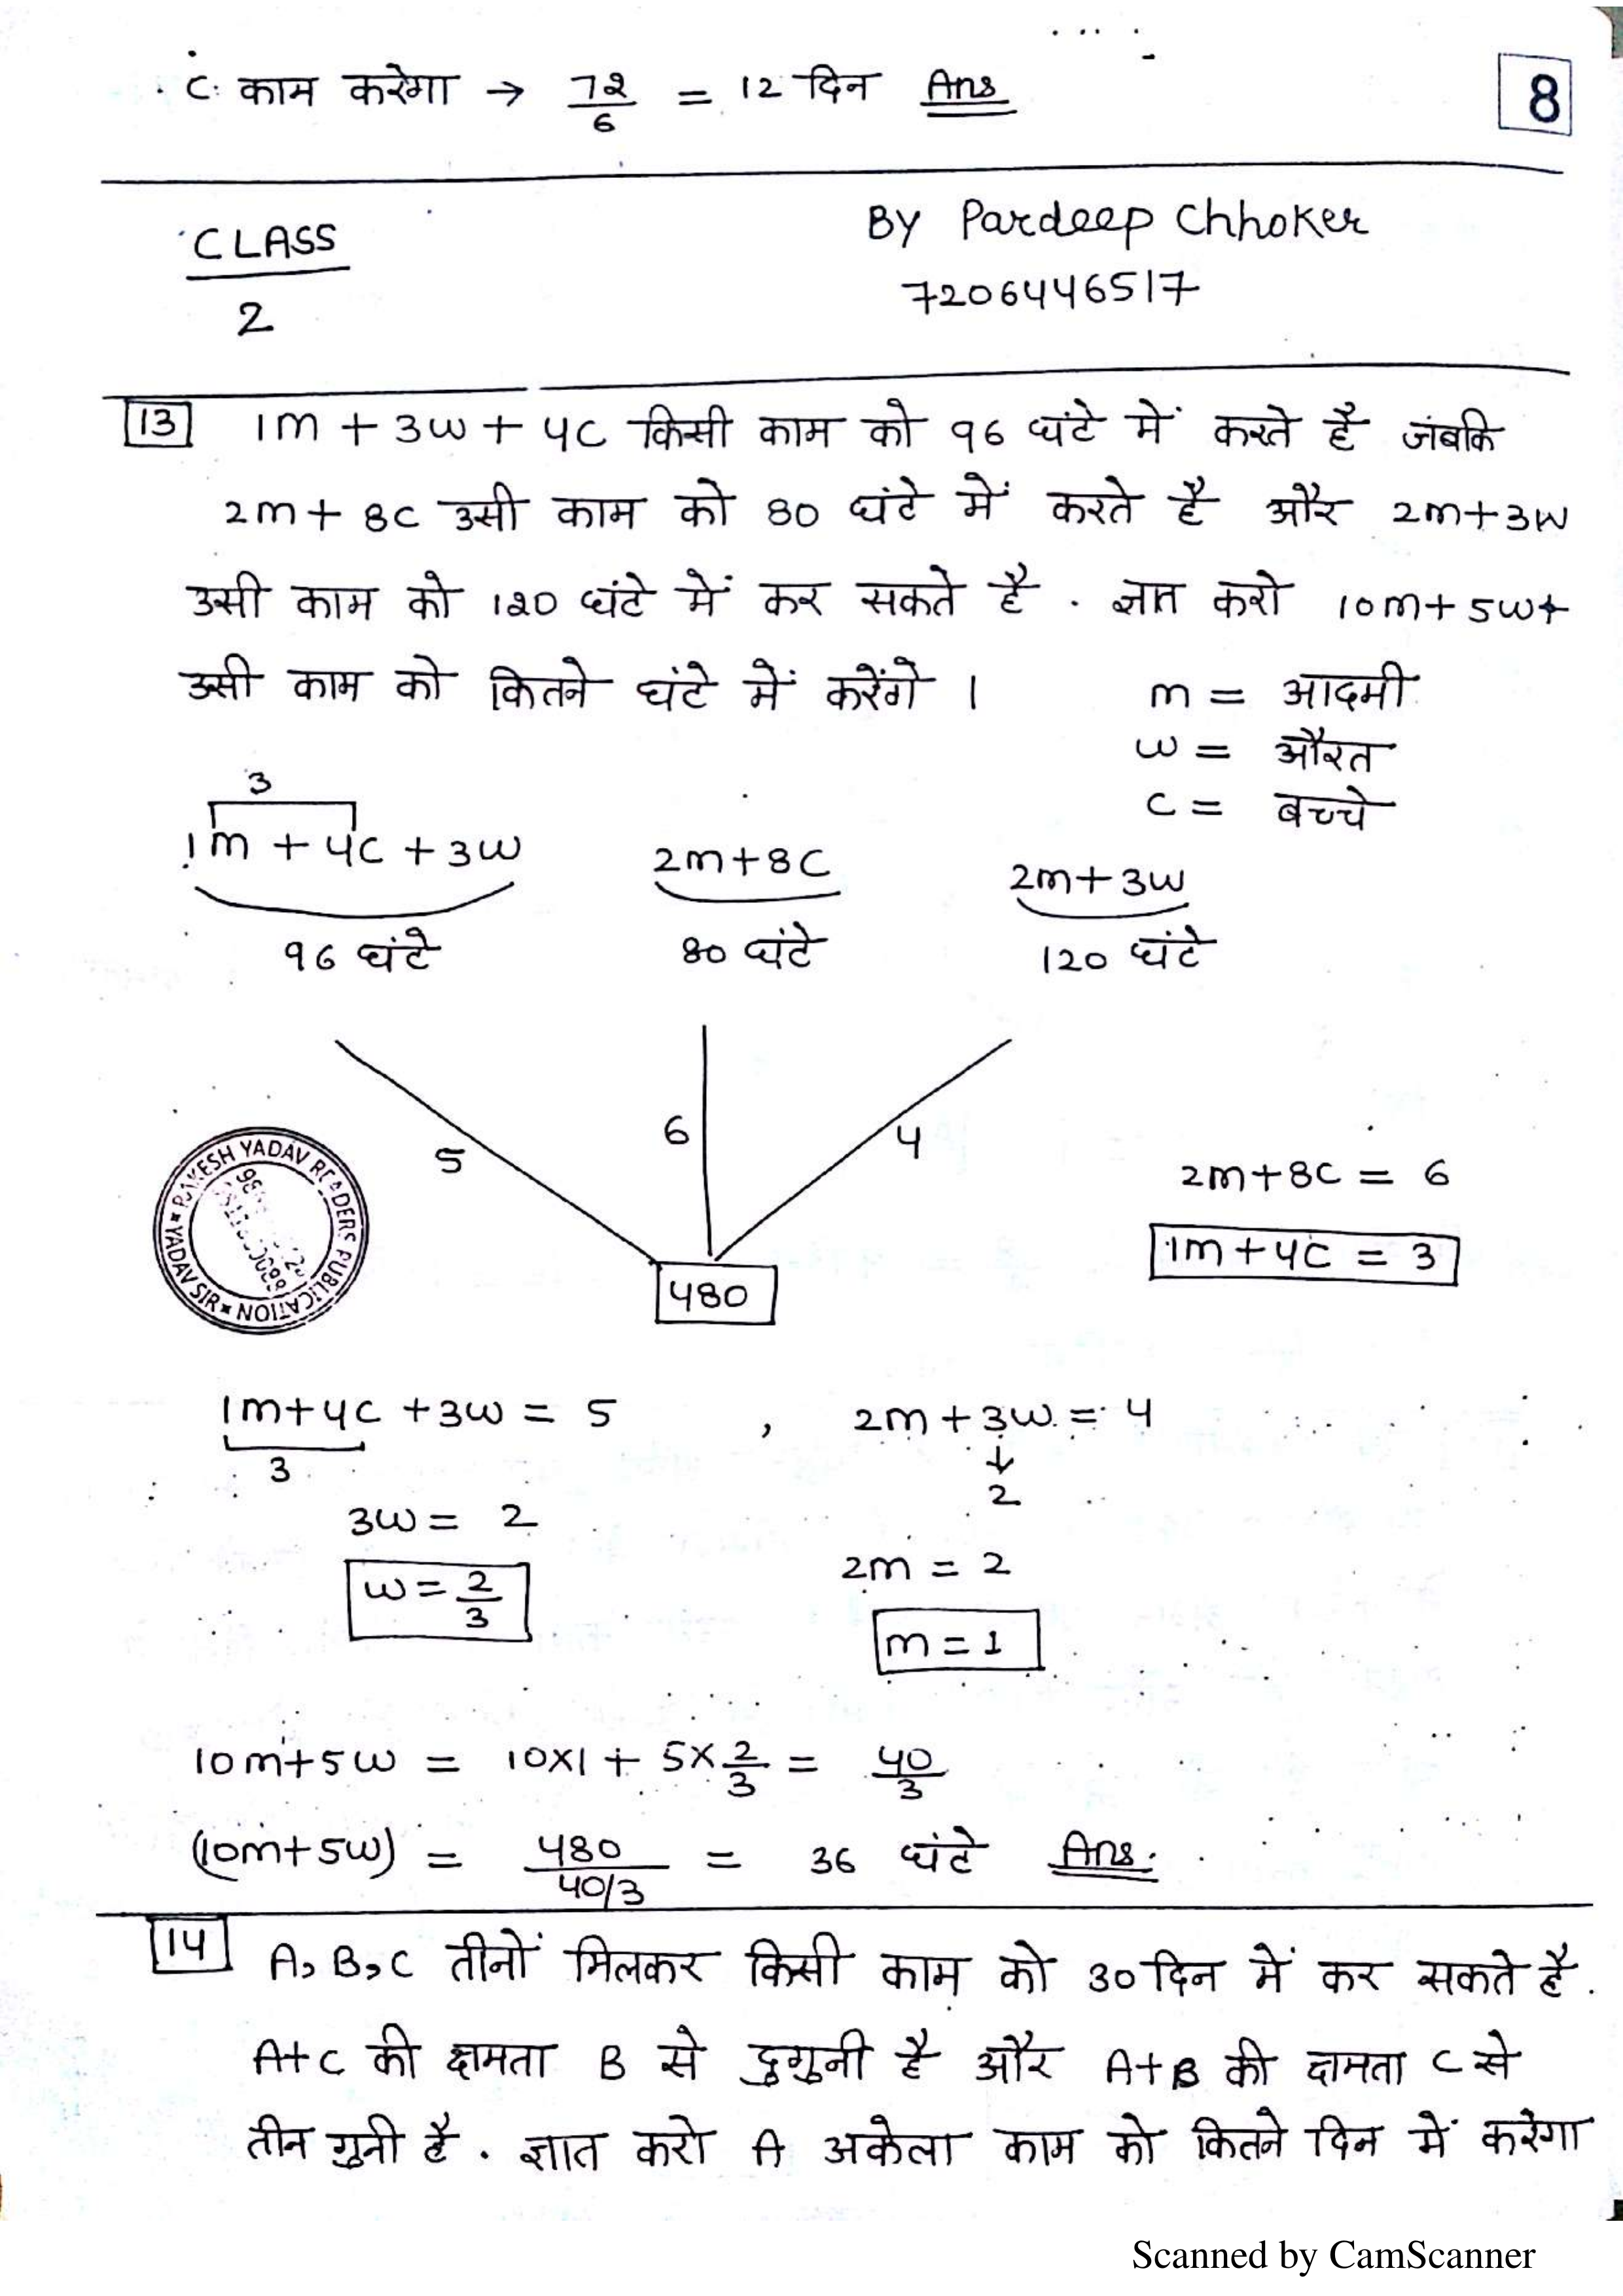 C. काम करेगा → 72/6 = 12 दिन Ans
8
CLASS
2
BY Pardeep Chhoker
7206446517
13 1m + 3w + 4c किसी काम को 96 घंटे में करते है जबकि
2m + 8c उसी काम को 80 घंटे में करते है और 2m+3w
उसी काम को 120 घंटे में कर सकते है . ज्ञात करो 10m+5w
उसी काम को कितने घंटे में करेंगे ।
m = आदमी
w = औरत
c = बच्चे
3
1m + 4c + 3w
2m+8c
2m+3w
96 घंटे
80 घंटे
120 घंटे
5
6
4
480
2m+8c = 6
1m + 4c = 3
RAKESH YADAV READERS PUBLICATION
YADAV SIR
1m+4c + 3w = 5 , 2m + 3w = 4
3
2
3w = 2
w = 2/3
2m = 2
m = 1
10m+5w = 10x1 + 5x 2/3 = 40/3
(10m+5w) = 480/40/3 = 36 घंटे Ans.
14 A, B, C तीनों मिलकर किसी काम को 30 दिन में कर सकते है .
A+C की क्षमता B से दुगुनी है और A+B की क्षमता C से
तीन गुनी है . ज्ञात करो A अकेला काम को कितने दिन में करेगा
Scanned by CamScanner